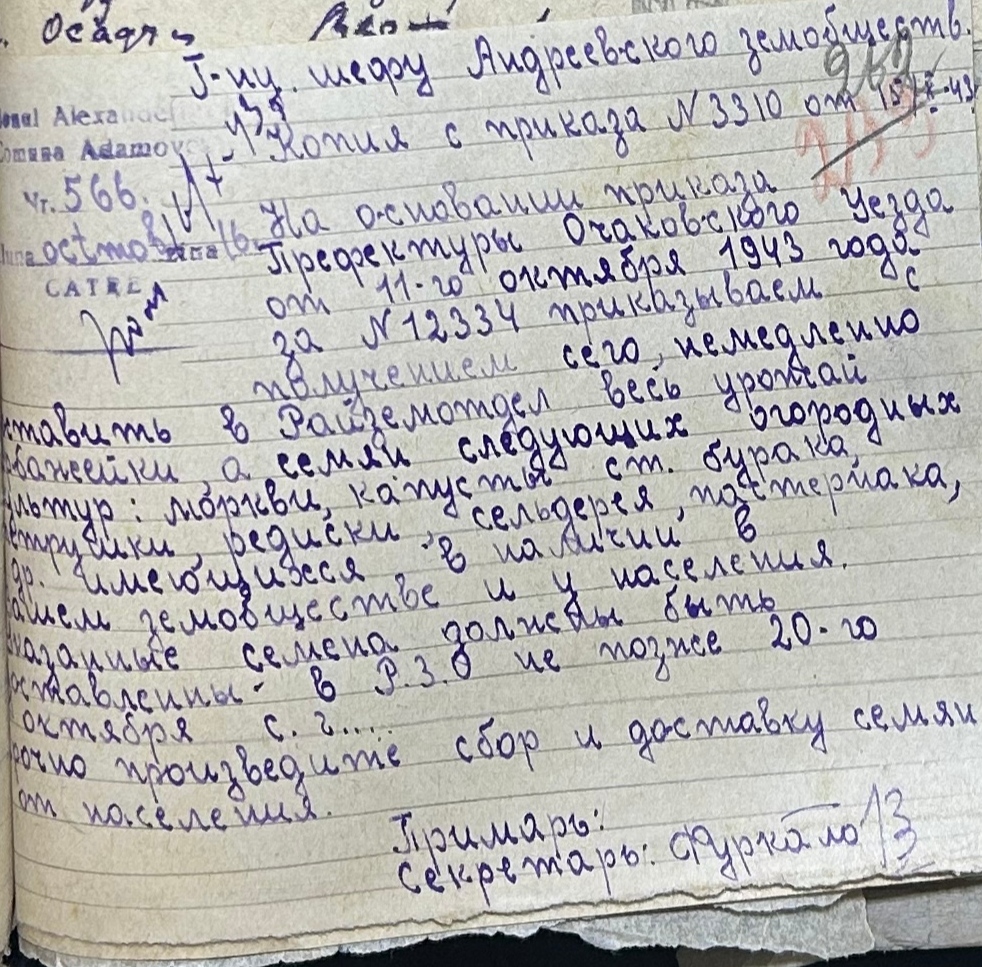 Осадч
Г-ну. шефу Андреевского земобществ.
Копия с приказа N 3310 от 15/X-43
onul Alexand
Comuna Adamov
Nr. 566.
На основании приказа
Префектуры Очаковского Уезда
от 11-го октября 1943 года
CATRE
за N 12334 приказываем с
получением сего, немедленно
ставить в Райземотдел весь урожай
а семян следующих огородных
льтур: моркви, капусты ст. бурака,
етрушки, редиски, сельдерея, пастернака,
др. имеющихся в наличии в
ашем земобществе и у населения.
казанные семена должны быть
ставленны в Р.З.О не позже 20-го
октября с. г....
рочно произведите сбор и доставку семян
от населения.
Примарь:
Секретарь: